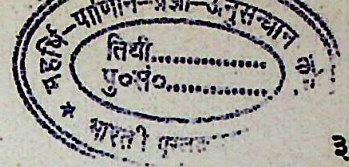 महर्षि-पाणिनि-प्रज्ञा-अनुसन्धान
तिथी................
पु०सं०................
* भारती
३